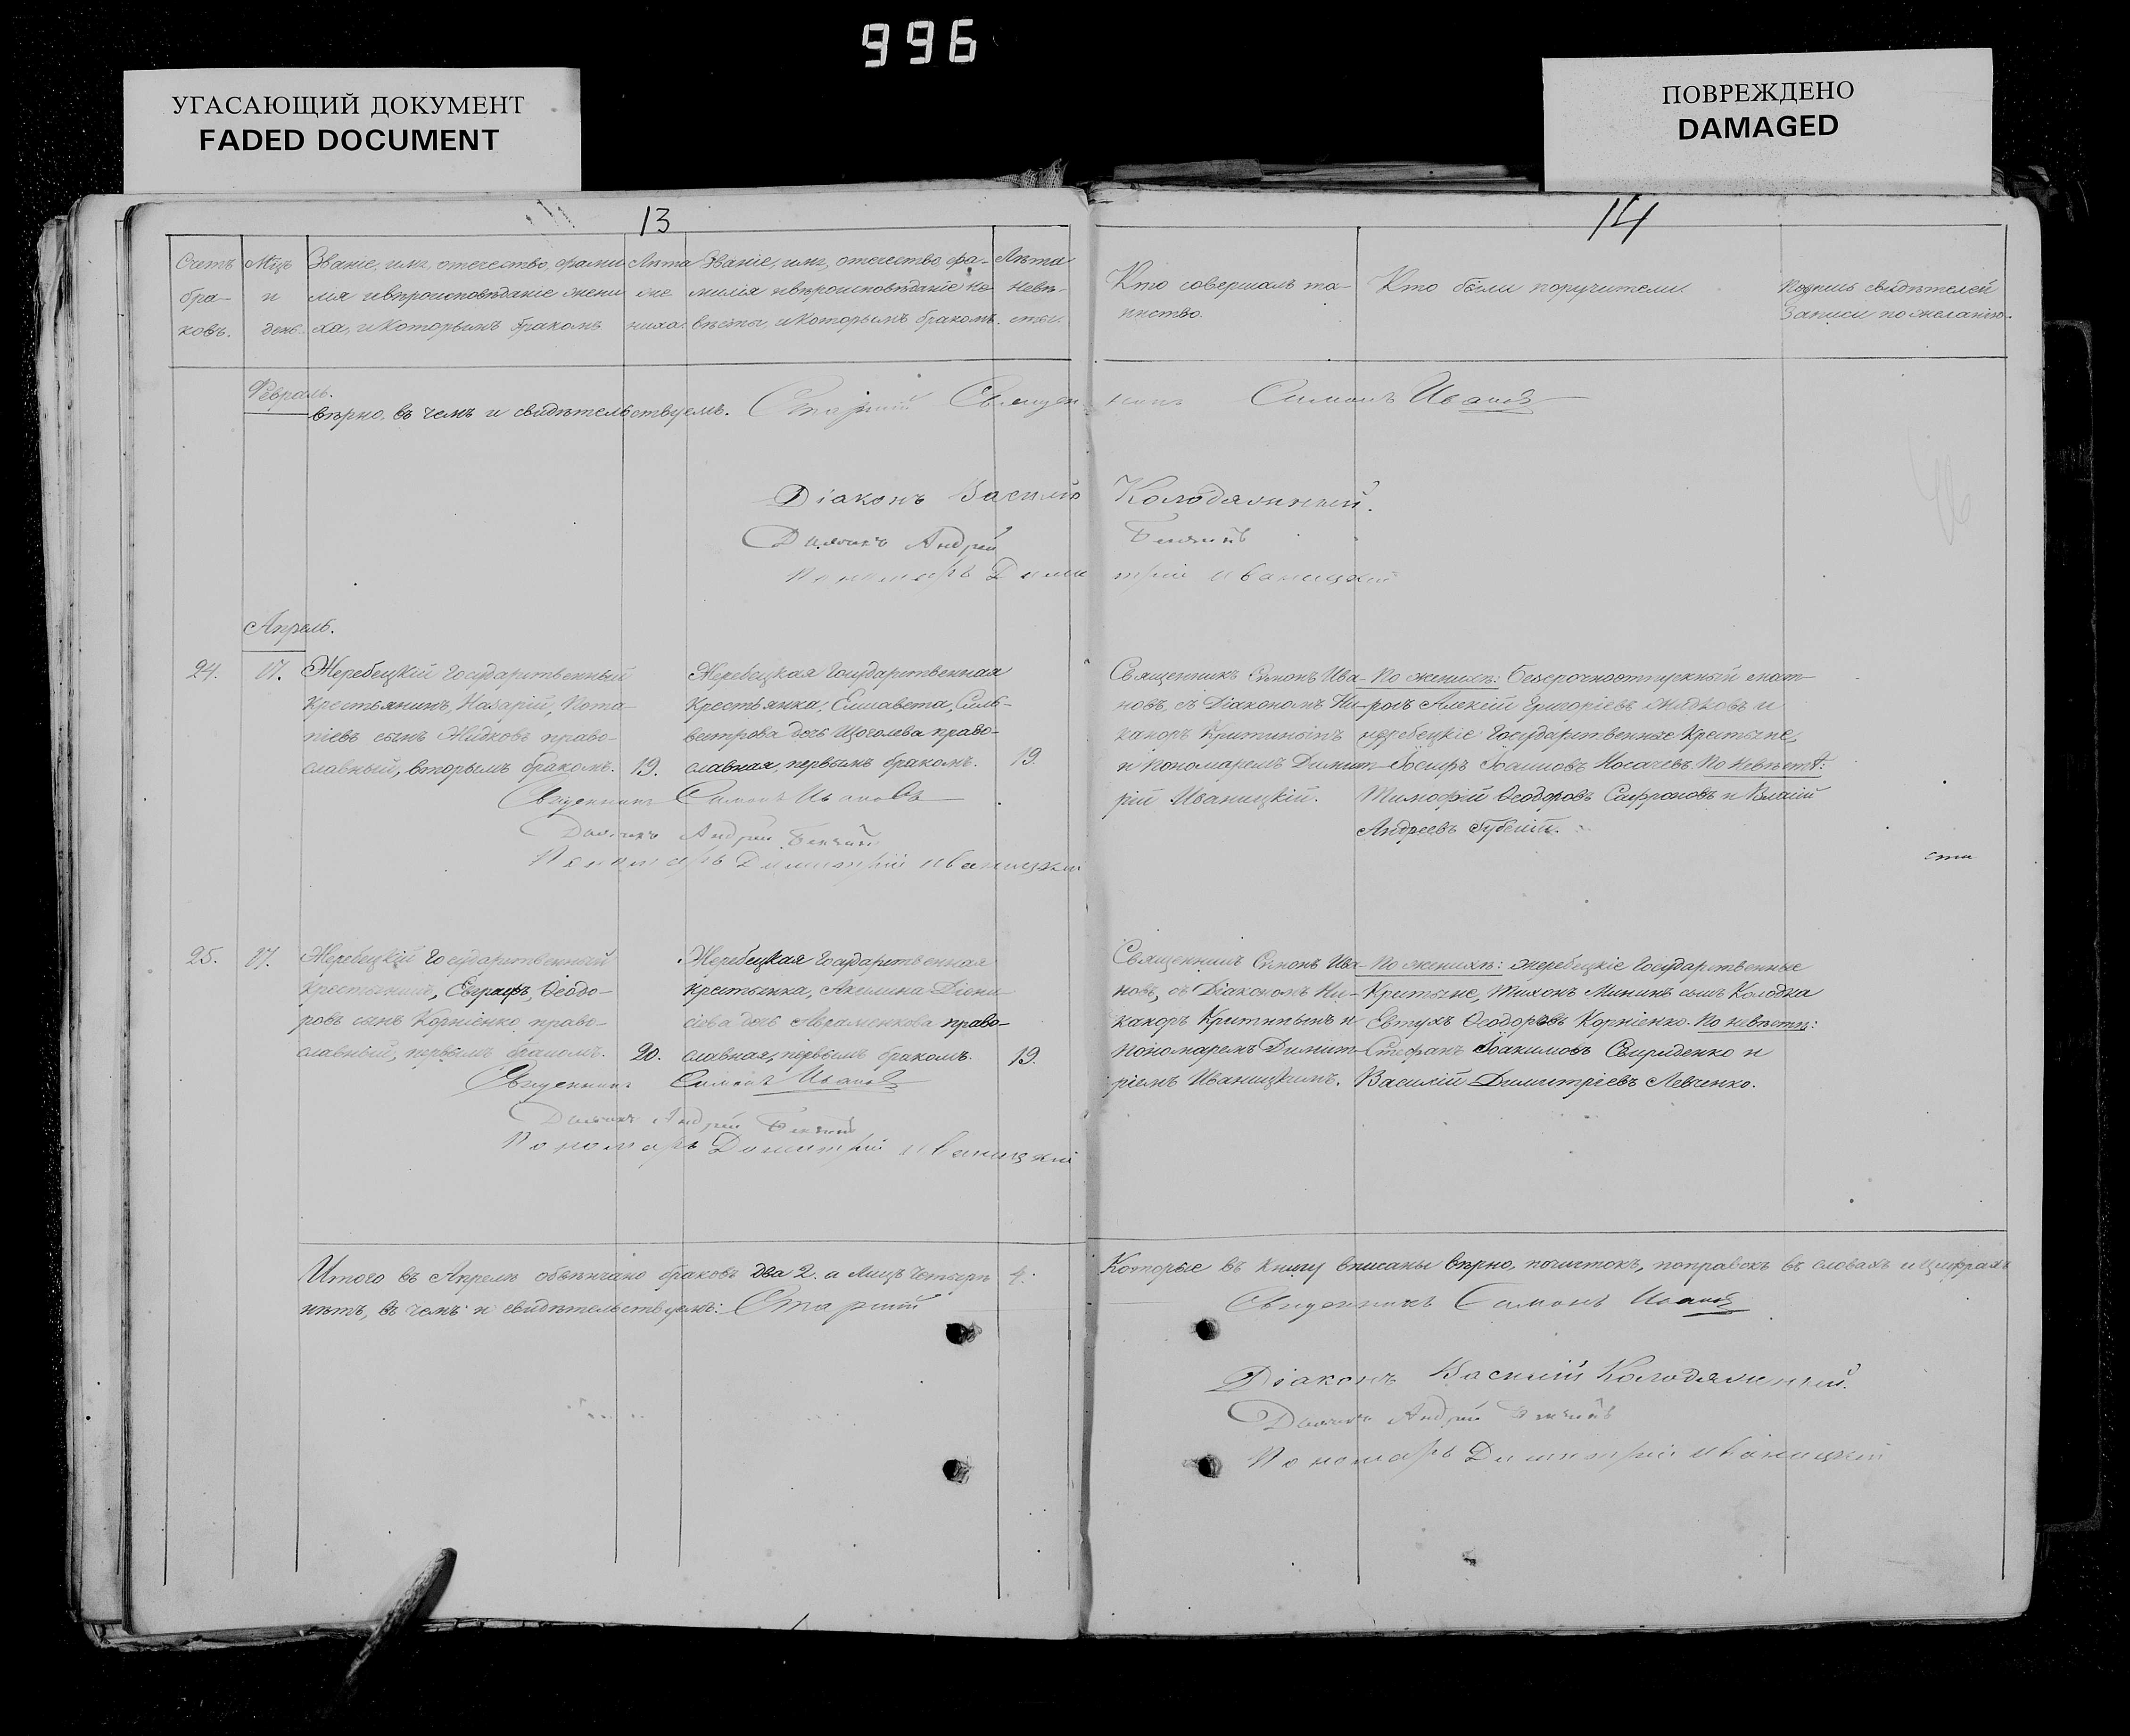 996
УГАСАЮЩИЙ ДОКУМЕНТ
FADED DOCUMENT
ПОВРЕЖДЕНО
DAMAGED
13
Счетъ бра-ковъ.
Мцъ и день.
Званіе, имя, отечество, фами
лія и вѣроисповѣданіе жени
ха, и которымъ бракомъ.
Лѣта же ниха.
Званіе, имя, отечество, фа-
милія и вѣроисповѣданіе не
вѣсты, и которымъ бракомъ.
Лѣта невѣ-сты.
Февраль.
вѣрно, въ чемъ и свидѣтельствуемъ. Старшій Священ
Діаконъ Василій
Дьячекъ Андрей
Пономарь Дими
Апрель.
24.
17.
Жеребецкій Государственный
Крестьянинъ, Назарій, Пота-
піевъ сынъ Жидковъ право-
славный, вторымъ бракомъ.
19.
Жеребецкая Государственная
Крестьянка, Елисавета, Силь-
вестрова дочь Щоголева право-
славная, первымъ бракомъ.
19.
Священникъ Симонъ Ивановъ
Дьячекъ Андрей
Пономарь Димитрій Иваницкій
25.
17.
Жеребецкій Государственный
Крестьянинъ, Евграфъ, Ѳеодо-
ровъ сынъ Корніенко, право-
славный, первымъ бракомъ.
20.
Жеребецкая Государственная
крестьянка, Акилина Діони
сіева дочь Авраменкова право-
славная, первымъ бракомъ.
19.
Священникъ Симонъ Ивановъ
Дьячекъ Андрей
Пономарь Димитрій Иваницкій
Итого въ Апрелѣ обвѣнчано браковъ два 2. а лицъ четыре 4.
нѣтъ, въ чемъ и свидѣтельствуемъ: Старшій
14
Кто совершалъ та-
инство.
Кто были поручители.
Подпись свидѣтелей
записи по желанію.
никъ Симонъ Ивановъ
Колодяжный.
трій Иваницкій
Священникъ Симонъ Ива-
новъ, съ Діакономъ Ни-
каноръ
и Пономаремъ Димит-
рій Иваницкій.
По женихѣ: Безсрочноотпускный
Алексій Григоріевъ Жидковъ и
жеребецкіе Государственные Крестьяне,
Іосифъ Іоанновъ Носачевъ. По невѣстѣ:
Тимофій Ѳеодоровъ Сафроновъ и
Андреевъ
Священникъ Симонъ Ива-
новъ, съ Діакономъ Ни-
каноръ
Пономаремъ Димит-
ріемъ Иваницкимъ.
По женихѣ: жеребецкіе Государственные
Крестьяне, Тихонъ Мининъ сынъ Колодка
Евтухъ Ѳеодоровъ Корніенко. По невѣстѣ:
Стефанъ Іоакимовъ Свириденко и
Василій Димитріевъ Левченко.
Которые въ книгу вписаны вѣрно, почистокъ, поправокъ въ словахъ и цифрахъ
Священникъ Симонъ Ивановъ
Діаконъ Василій Колодяжный.
Дьячекъ Андрей
Пономарь Димитрій Иваницкій